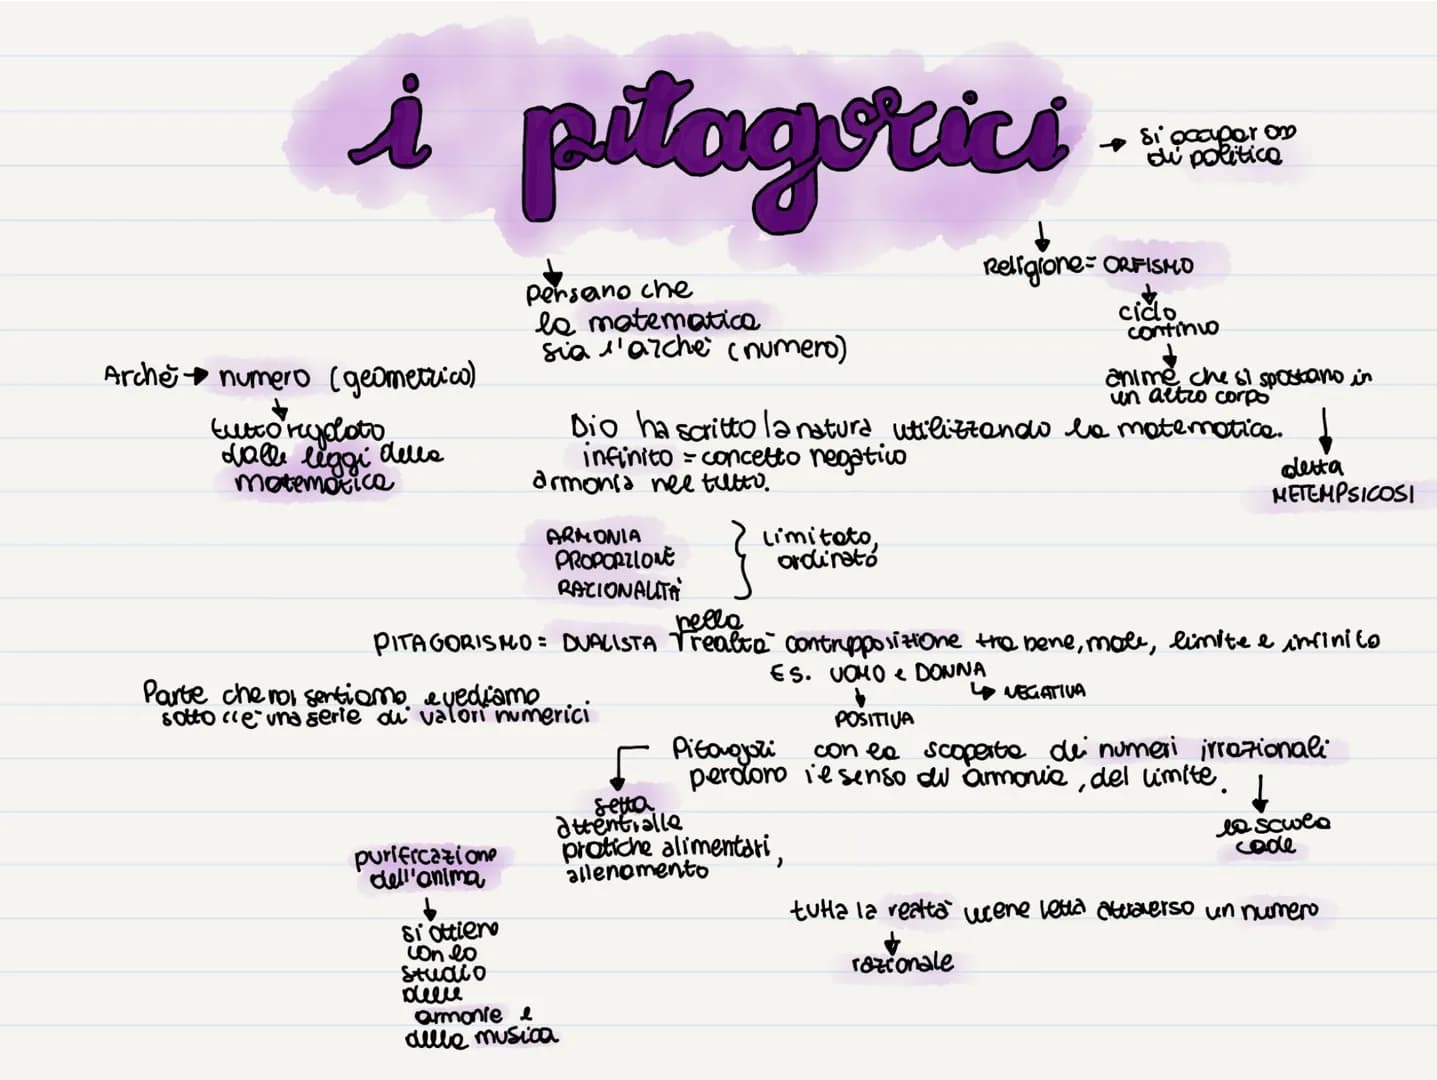 i pitagorici
→ si occuparono
di politica
Religione= ORFISMO
ciclo
continuo
anime che si spostano in
un altro corpo
detta
METEMPSICOSI
Pensano che
la matematica
sia l'archè (numero)
Archè → numero (geometrico)
tutto regolato
dalle leggi della
matematica
Dio ha scritto la natura utilizzando la matematica.
infinito = concetto negativo
armonia nel tutto.
ARMONIA
PROPORZIONE
RAZIONALITÀ
Limitato,
ordinato
nella
PITAGORISMO = DUALISTA realtà contrapposizione tra bene, male, limite e infinito
ES. UOMO e DONNA
↳ NEGATIVA
POSITIVA
Parte che noi sentiamo e vediamo
sotto c'è una serie di valori numerici
Pitagorici con la scoperta dei numeri irrazionali
perdono il senso di armonia, del limite.
la scuola
cade
setta
attenti alle
pratiche alimentari,
allenamento
purificazione
dell'anima
si ottiene
con lo
studio
delle
armonie e
della musica
tutta la realtà viene letta attraverso un numero
razionale